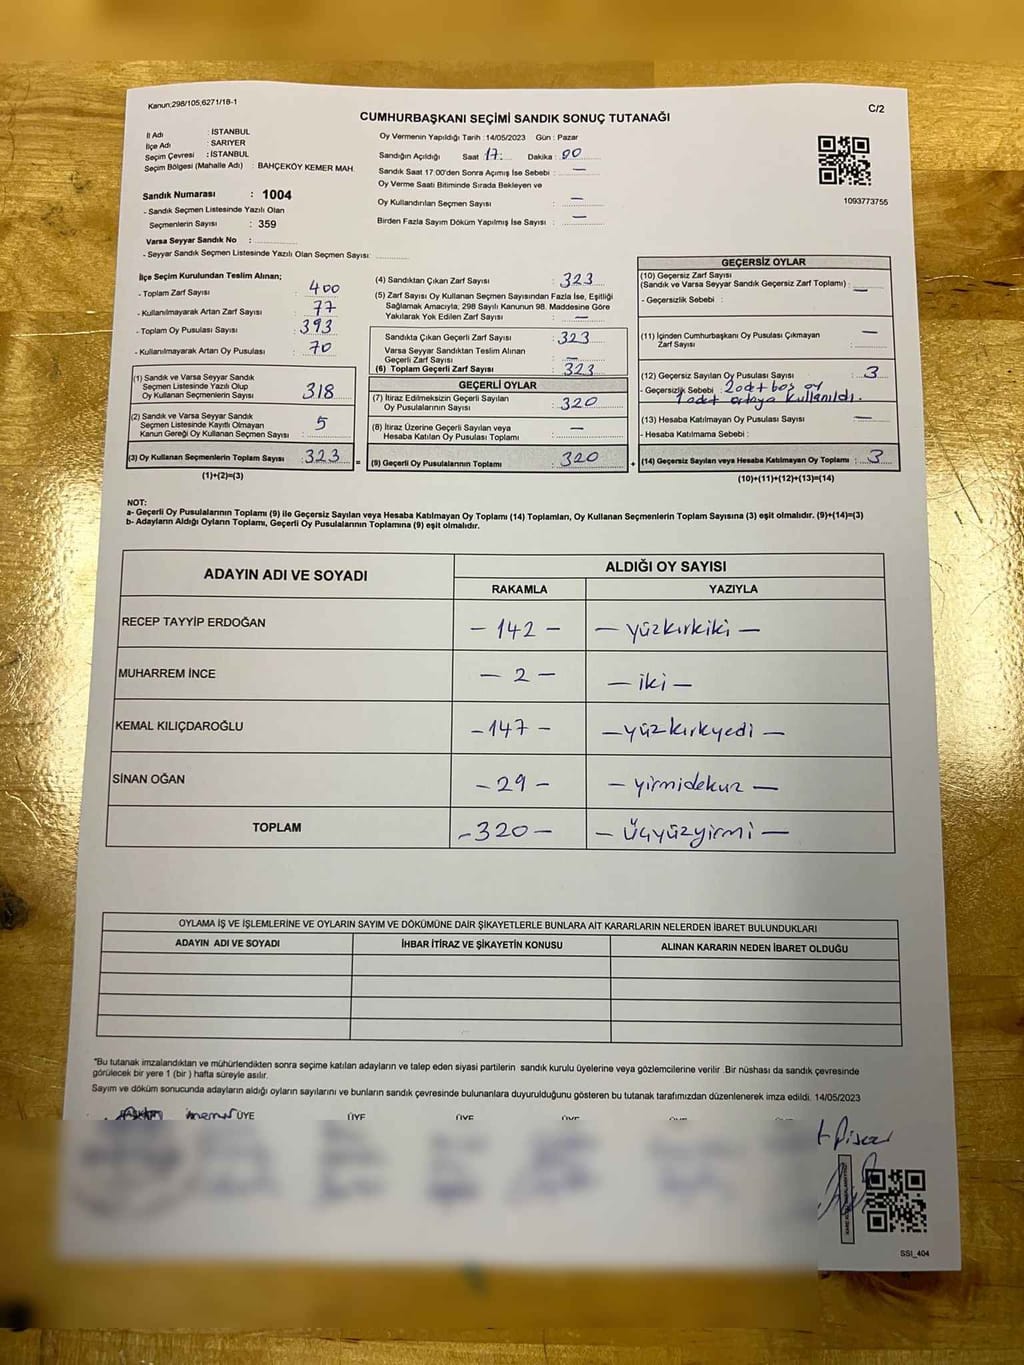 Kanun:298/105,6271/18-1
C/2
CUMHURBAŞKANI SEÇİMİ SANDIK SONUÇ TUTANAĞI
İl Adı : İSTANBUL
İlçe Adı : SARIYER
Seçim Çevresi : İSTANBUL
Seçim Bölgesi (Mahalle Adı) : BAHÇEKÖY KEMER MAH.
Sandık Numarası : 1004
- Sandık Seçmen Listesinde Yazılı Olan
Seçmenlerin Sayısı : 359
Varsa Seyyar Sandık No :
- Seyyar Sandık Seçmen Listesinde Yazılı Olan Seçmen Sayısı:
Oy Vermenin Yapıldığı Tarih :14/05/2023 Gün : Pazar
Sandığın Açıldığı Saat 17: Dakika : 00
Sandık Saat 17:00'den Sonra Açımış İse Sebebi : —
Oy Verme Saati Bitiminde Sırada Bekleyen ve
Oy Kullandırılan Seçmen Sayısı : —
Birden Fazla Sayım Döküm Yapılmış İse Sayısı : —
1093773755
İlçe Seçim Kurulundan Teslim Alınan;
- Toplam Zarf Sayısı : 400
- Kullanılmayarak Artan Zarf Sayısı : 77
- Toplam Oy Pusulası Sayısı : 393
- Kullanılmayarak Artan Oy Pusulası : 70
(1) Sandık ve Varsa Seyyar Sandık
Seçmen Listesinde Yazılı Olup
Oy Kullanan Seçmenlerin Sayısı : 318
(2) Sandık ve Varsa Seyyar Sandık
Seçmen Listesinde Kayıtlı Olmayan
Kanun Gereği Oy Kullanan Seçmen Sayısı : 5
(3) Oy Kullanan Seçmenlerin Toplam Sayısı : 323 =
(1)+(2)=(3)
(4) Sandıktan Çıkan Zarf Sayısı : 323
(5) Zarf Sayısı Oy Kullanan Seçmen Sayısından Fazla İse, Eşitliği
Sağlamak Amacıyla; 298 Sayılı Kanunun 98. Maddesine Göre
Yakılarak Yok Edilen Zarf Sayısı : —
Sandıkta Çıkan Geçerli Zarf Sayısı : 323
Varsa Seyyar Sandıktan Teslim Alınan
Geçerli Zarf Sayısı : —
(6) Toplam Geçerli Zarf Sayısı : 323
GEÇERLİ OYLAR
(7) İtiraz Edilmeksizin Geçerli Sayılan
Oy Pusulalarının Sayısı : 320
(8) İtiraz Üzerine Geçerli Sayılan veya
Hesaba Katılan Oy Pusulası Toplamı : —
(9) Geçerli Oy Pusulalarının Toplamı : 320 +
GEÇERSİZ OYLAR
(10) Geçersiz Zarf Sayısı
(Sandık ve Varsa Seyyar Sandık Geçersiz Zarf Toplamı) : —
- Geçersizlik Sebebi :
(11) İçinden Cumhurbaşkanı Oy Pusulası Çıkmayan
Zarf Sayısı : —
(12) Geçersiz Sayılan Oy Pusulası Sayısı : 3
- Geçersizlik Sebebi : 2 adet boş oy
1 adet ortaya kullanıldı.
(13) Hesaba Katılmayan Oy Pusulası Sayısı : —
- Hesaba Katılmama Sebebi :
(14) Geçersiz Sayılan veya Hesaba Katılmayan Oy Toplamı : 3
(10)+(11)+(12)+(13)=(14)
NOT:
a- Geçerli Oy Pusulalarının Toplamı (9) ile Geçersiz Sayılan veya Hesaba Katılmayan Oy Toplamı (14) Toplamları, Oy Kullanan Seçmenlerin Toplam Sayısına (3) eşit olmalıdır. (9)+(14)=(3)
b- Adayların Aldığı Oyların Toplamı, Geçerli Oy Pusulalarının Toplamına (9) eşit olmalıdır.
ADAYIN ADI VE SOYADI ALDIĞI OY SAYISI
RAKAMLA YAZIYLA
RECEP TAYYİP ERDOĞAN – 142 – – yüzkırkiki –
MUHARREM İNCE – 2 – – iki –
KEMAL KILIÇDAROĞLU – 147 – – yüzkırkyedi –
SİNAN OĞAN – 29 – – yirmidokuz –
TOPLAM – 320 – – Üçyüzyirmi –
OYLAMA İŞ VE İŞLEMLERİNE VE OYLARIN SAYIM VE DÖKÜMÜNE DAİR ŞİKAYETLERLE BUNLARA AİT KARARLARIN NELERDEN İBARET BULUNDUKLARI
ADAYIN ADI VE SOYADI İHBAR İTİRAZ VE ŞİKAYETİN KONUSU ALINAN KARARIN NEDEN İBARET OLDUĞU
*Bu tutanak imzalandıktan ve mühürlendikten sonra seçime katılan adayların ve talep eden siyasi partilerin sandık kurulu üyelerine veya gözlemcilerine verilir .Bir nüshası da sandık çevresinde
görülecek bir yere 1 (bir ) hafta süreyle asılır.
Sayım ve döküm sonucunda adayların aldığı oyların sayılarını ve bunların sandık çevresinde bulunanlara duyurulduğunu gösteren bu tutanak tarafımızdan düzenlenerek imza edildi. 14/05/2023
BAŞKAN ÜYE ÜYE ÜYE ÜYE
SSI_404